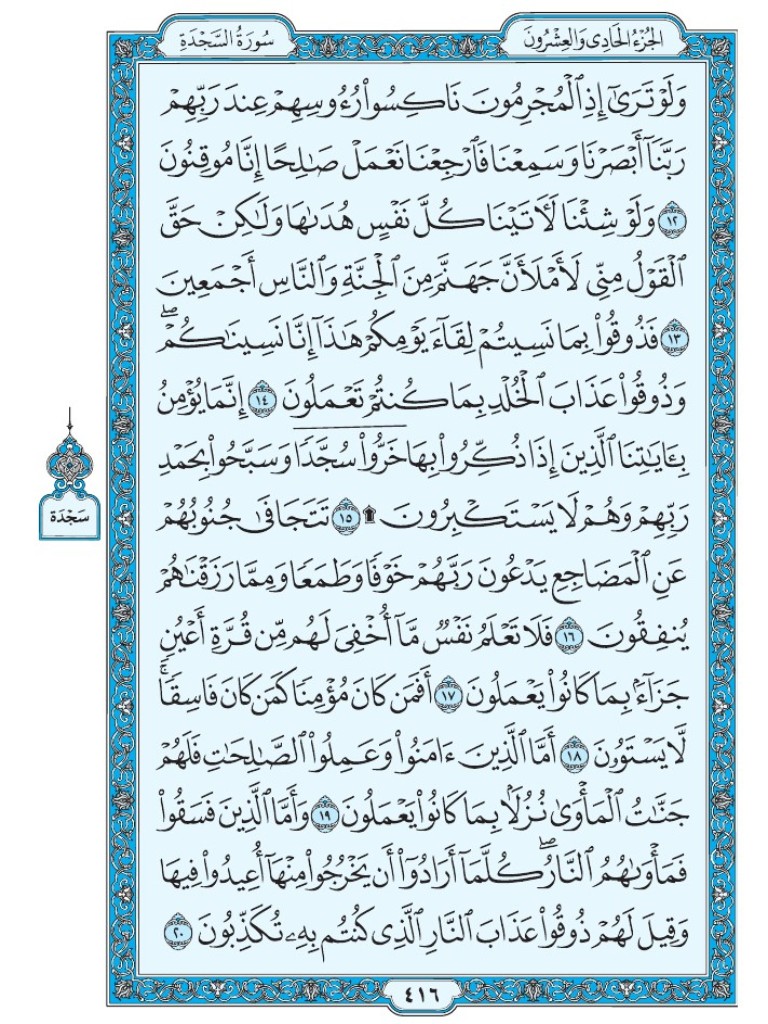 الجُزْءُ الحَادِي وَالعِشْرُونَ
سُورَةُ السَّجْدَةِ
وَلَوْ تَرَىٰٓ إِذِ ٱلْمُجْرِمُونَ نَاكِسُوا۟ رُءُوسِهِمْ عِندَ رَبِّهِمْ
رَبَّنَآ أَبْصَرْنَا وَسَمِعْنَا فَٱرْجِعْنَا نَعْمَلْ صَٰلِحًا إِنَّا مُوقِنُونَ
١٢ وَلَوْ شِئْنَا لَءَاتَيْنَا كُلَّ نَفْسٍ هُدَىٰهَا وَلَٰكِنْ حَقَّ
ٱلْقَوْلُ مِنِّى لَأَمْلَأَنَّ جَهَنَّمَ مِنَ ٱلْجِنَّةِ وَٱلنَّاسِ أَجْمَعِينَ
١٣ فَذُوقُوا۟ بِمَا نَسِيتُمْ لِقَآءَ يَوْمِكُمْ هَٰذَآ إِنَّا نَسِينَٰكُمْ ۖ
وَذُوقُوا۟ عَذَابَ ٱلْخُلْدِ بِمَا كُنتُمْ تَعْمَلُونَ ١٤ إِنَّمَا يُؤْمِنُ
بِـَٔايَٰتِنَا ٱلَّذِينَ إِذَا ذُكِّرُوا۟ بِهَا خَرُّوا۟ سُجَّدًا وَسَبَّحُوا۟ بِحَمْدِ
رَبِّهِمْ وَهُمْ لَا يَسْتَكْبِرُونَ ۩ ١٥ تَتَجَافَىٰ جُنُوبُهُمْ
عَنِ ٱلْمَضَاجِعِ يَدْعُونَ رَبَّهُمْ خَوْفًا وَطَمَعًا وَمِمَّا رَزَقْنَٰهُمْ
يُنفِقُونَ ١٦ فَلَا تَعْلَمُ نَفْسٌ مَّآ أُخْفِىَ لَهُم مِّن قُرَّةِ أَعْيُنٍ
جَزَآءًۢ بِمَا كَانُوا۟ يَعْمَلُونَ ١٧ أَفَمَن كَانَ مُؤْمِنًا كَمَن كَانَ فَاسِقًا ۚ
لَّا يَسْتَوُۥنَ ١٨ أَمَّا ٱلَّذِينَ ءَامَنُوا۟ وَعَمِلُوا۟ ٱلصَّٰلِحَٰتِ فَلَهُمْ
جَنَّٰتُ ٱلْمَأْوَىٰ نُزُلًۢا بِمَا كَانُوا۟ يَعْمَلُونَ ١٩ وَأَمَّا ٱلَّذِينَ فَسَقُوا۟
فَمَأْوَىٰهُمُ ٱلنَّارُ ۖ كُلَّمَآ أَرَادُوٓا۟ أَن يَخْرُجُوا۟ مِنْهَآ أُعِيدُوا۟ فِيهَا
وَقِيلَ لَهُمْ ذُوقُوا۟ عَذَابَ ٱلنَّارِ ٱلَّذِى كُنتُم بِهِۦ تُكَذِّبُونَ ٢٠
سَجْدَة
٤١٦